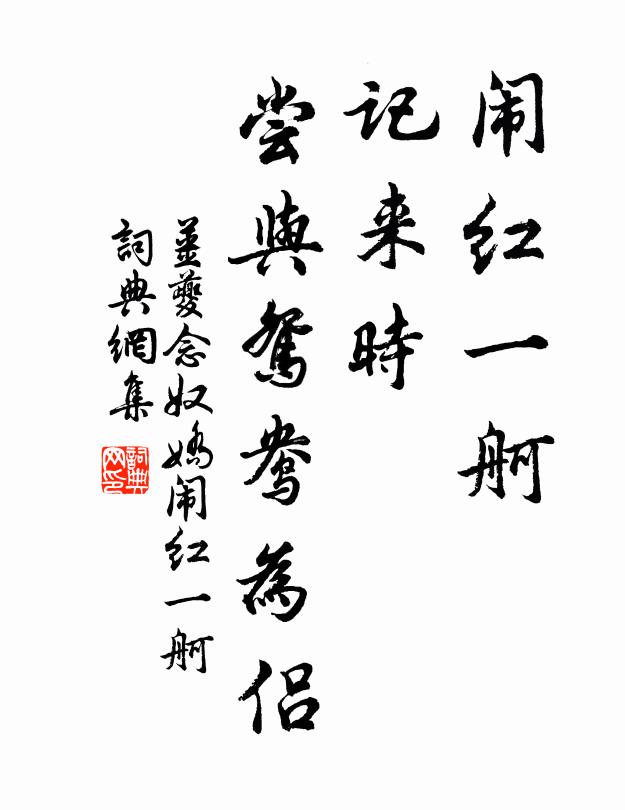 闹红一舸
记来時
尝與鴛鴦為侣
薑夔念奴嬌闹红一舸
詞典網集
詞典网印